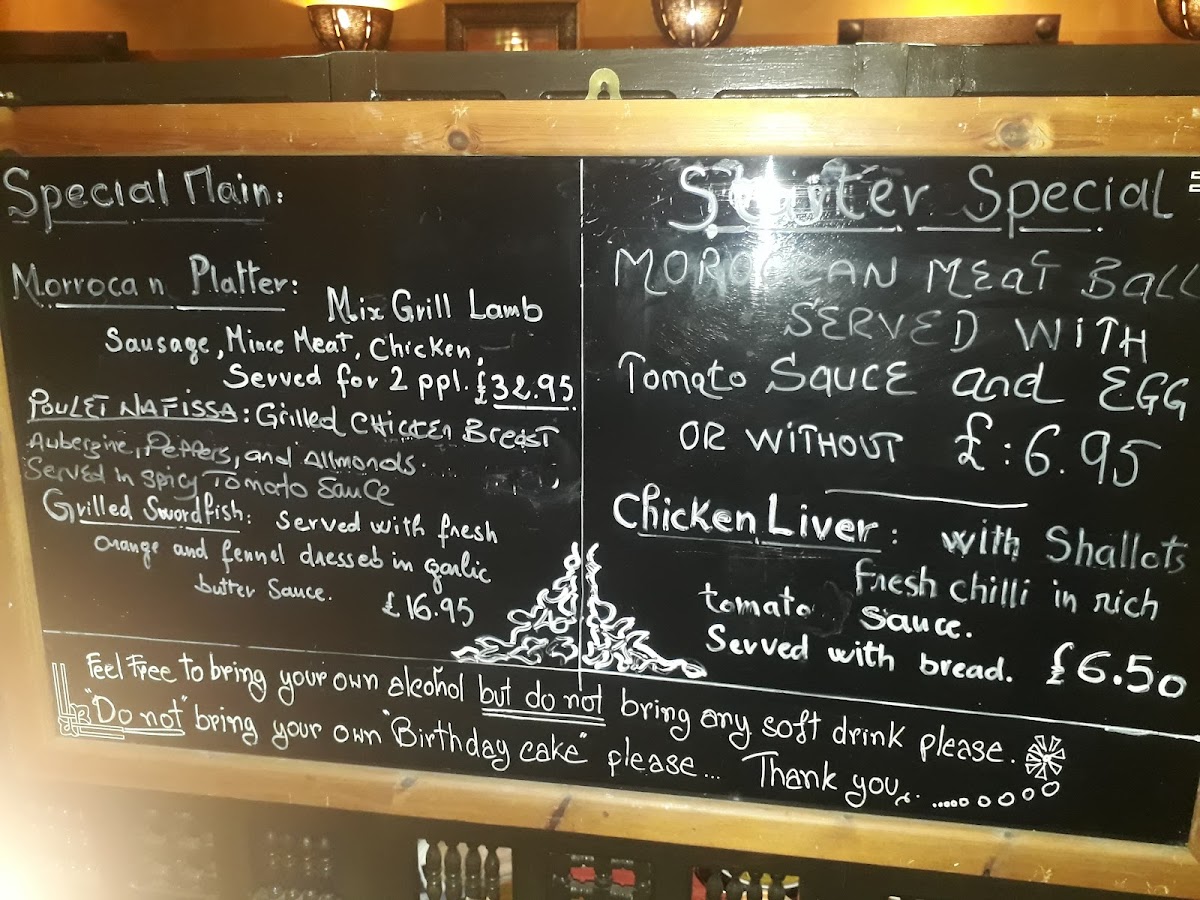 Special Main:
Morrocan Platter: Mix Grill Lamb
Sausage, Mince Meat, Chicken,
Served for 2 ppl. £32.95
POULET NAFISSA: Grilled Chicken Breast
Aubergine, Peppers, and Allmonds.
Served in spicy Tomato Sauce
Grilled Swordfish: served with fresh
orange and fennel dressed in garlic
butter Sauce. £16.95
Starter Special
MOROCCAN MEAT BALL
SERVED WITH
Tomato SAUCE and EGG
OR WITHOUT £:6.95
Chicken Liver: with Shallots
fresh chilli in rich
tomato Sauce.
Served with bread. £6.50
Feel Free to bring your own alcohol but do not bring any soft drink please.
"Do not" bring your own "Birthday cake" please... Thank you...